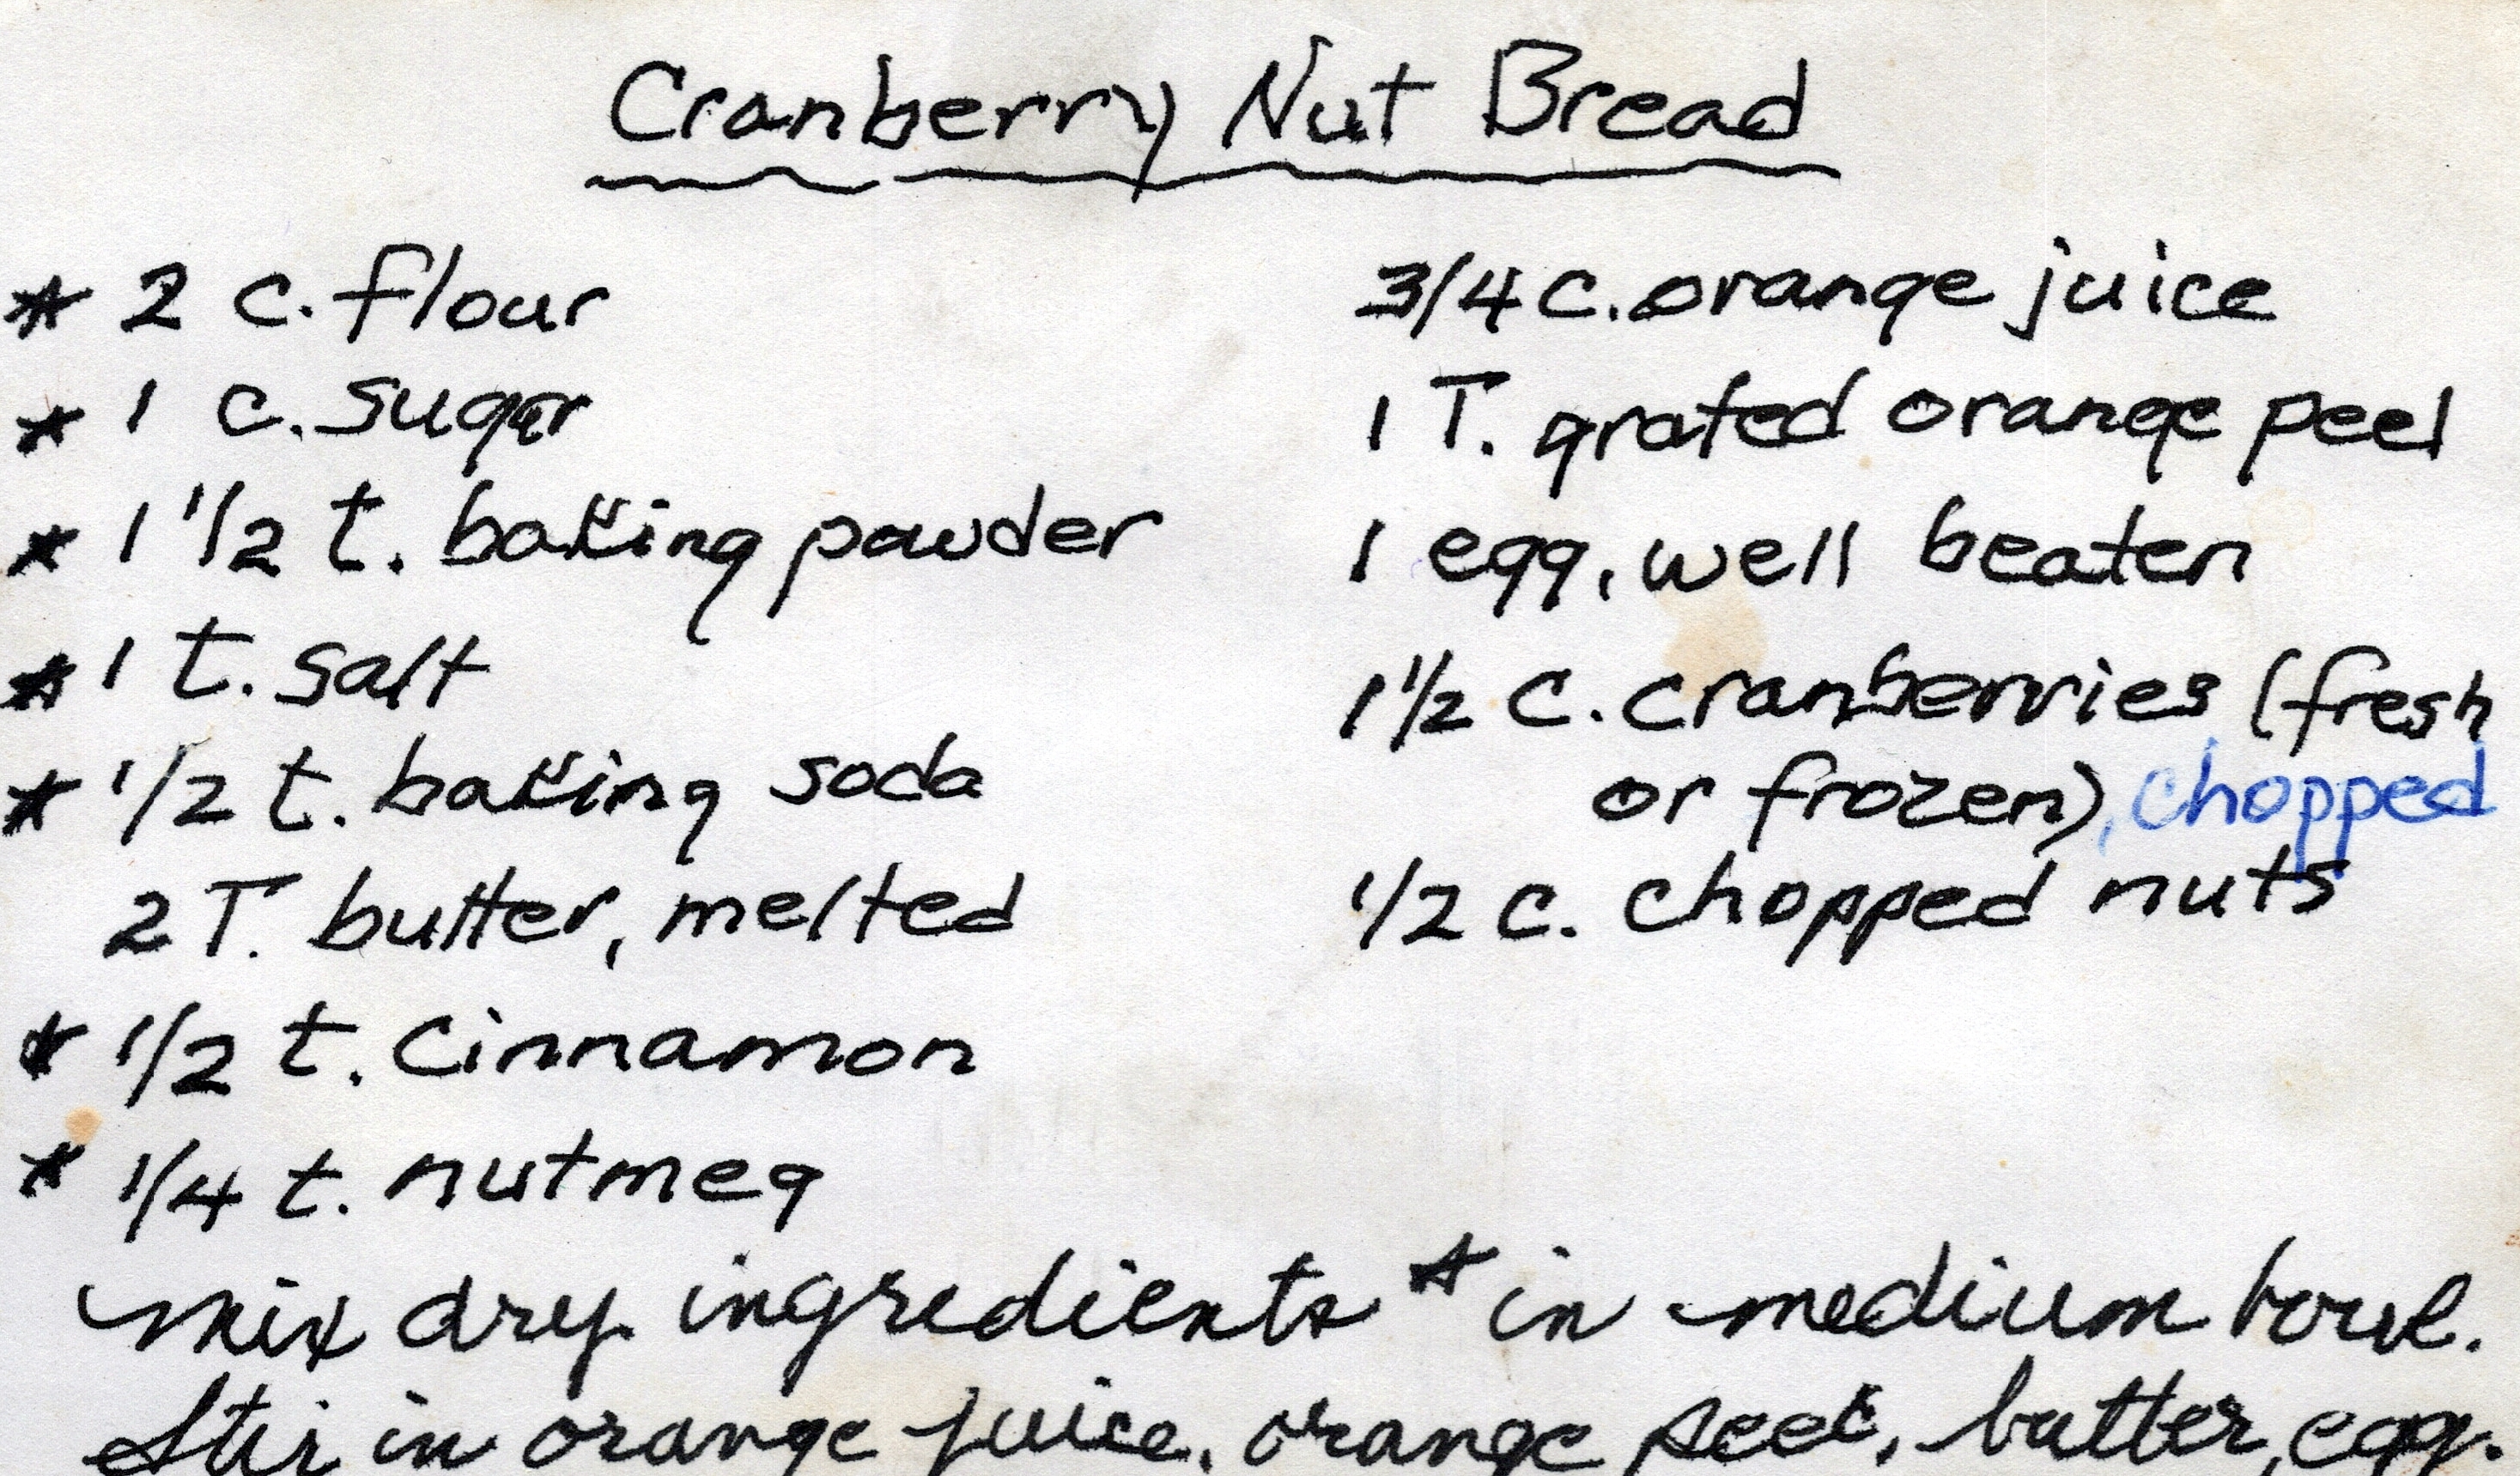 Cranberry Nut Bread
* 2 c. flour
* 1 c. sugar
* 1 1/2 t. baking powder
* 1 t. salt
* 1/2 t. baking soda
2 T. butter, melted
* 1/2 t. cinnamon
* 1/4 t. nutmeg
3/4 c. orange juice
1 T. grated orange peel
1 egg, well beaten
1 1/2 c. cranberries (fresh
or frozen), chopped
1/2 c. chopped nuts
Mix dry ingredients * in medium bowl.
Stir in orange juice, orange peel, butter, egg.